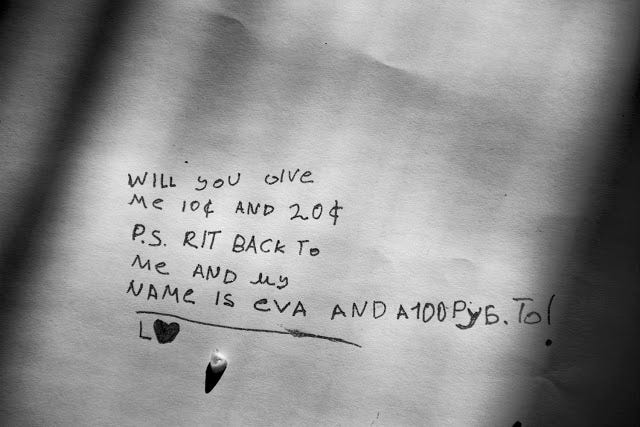 WILL YOU GIVE
Me 10¢ AND 20¢
P.S. RIT BACK TO
Me AND My
NAMe IS eVA AND A 100 Руб. To!
L♥